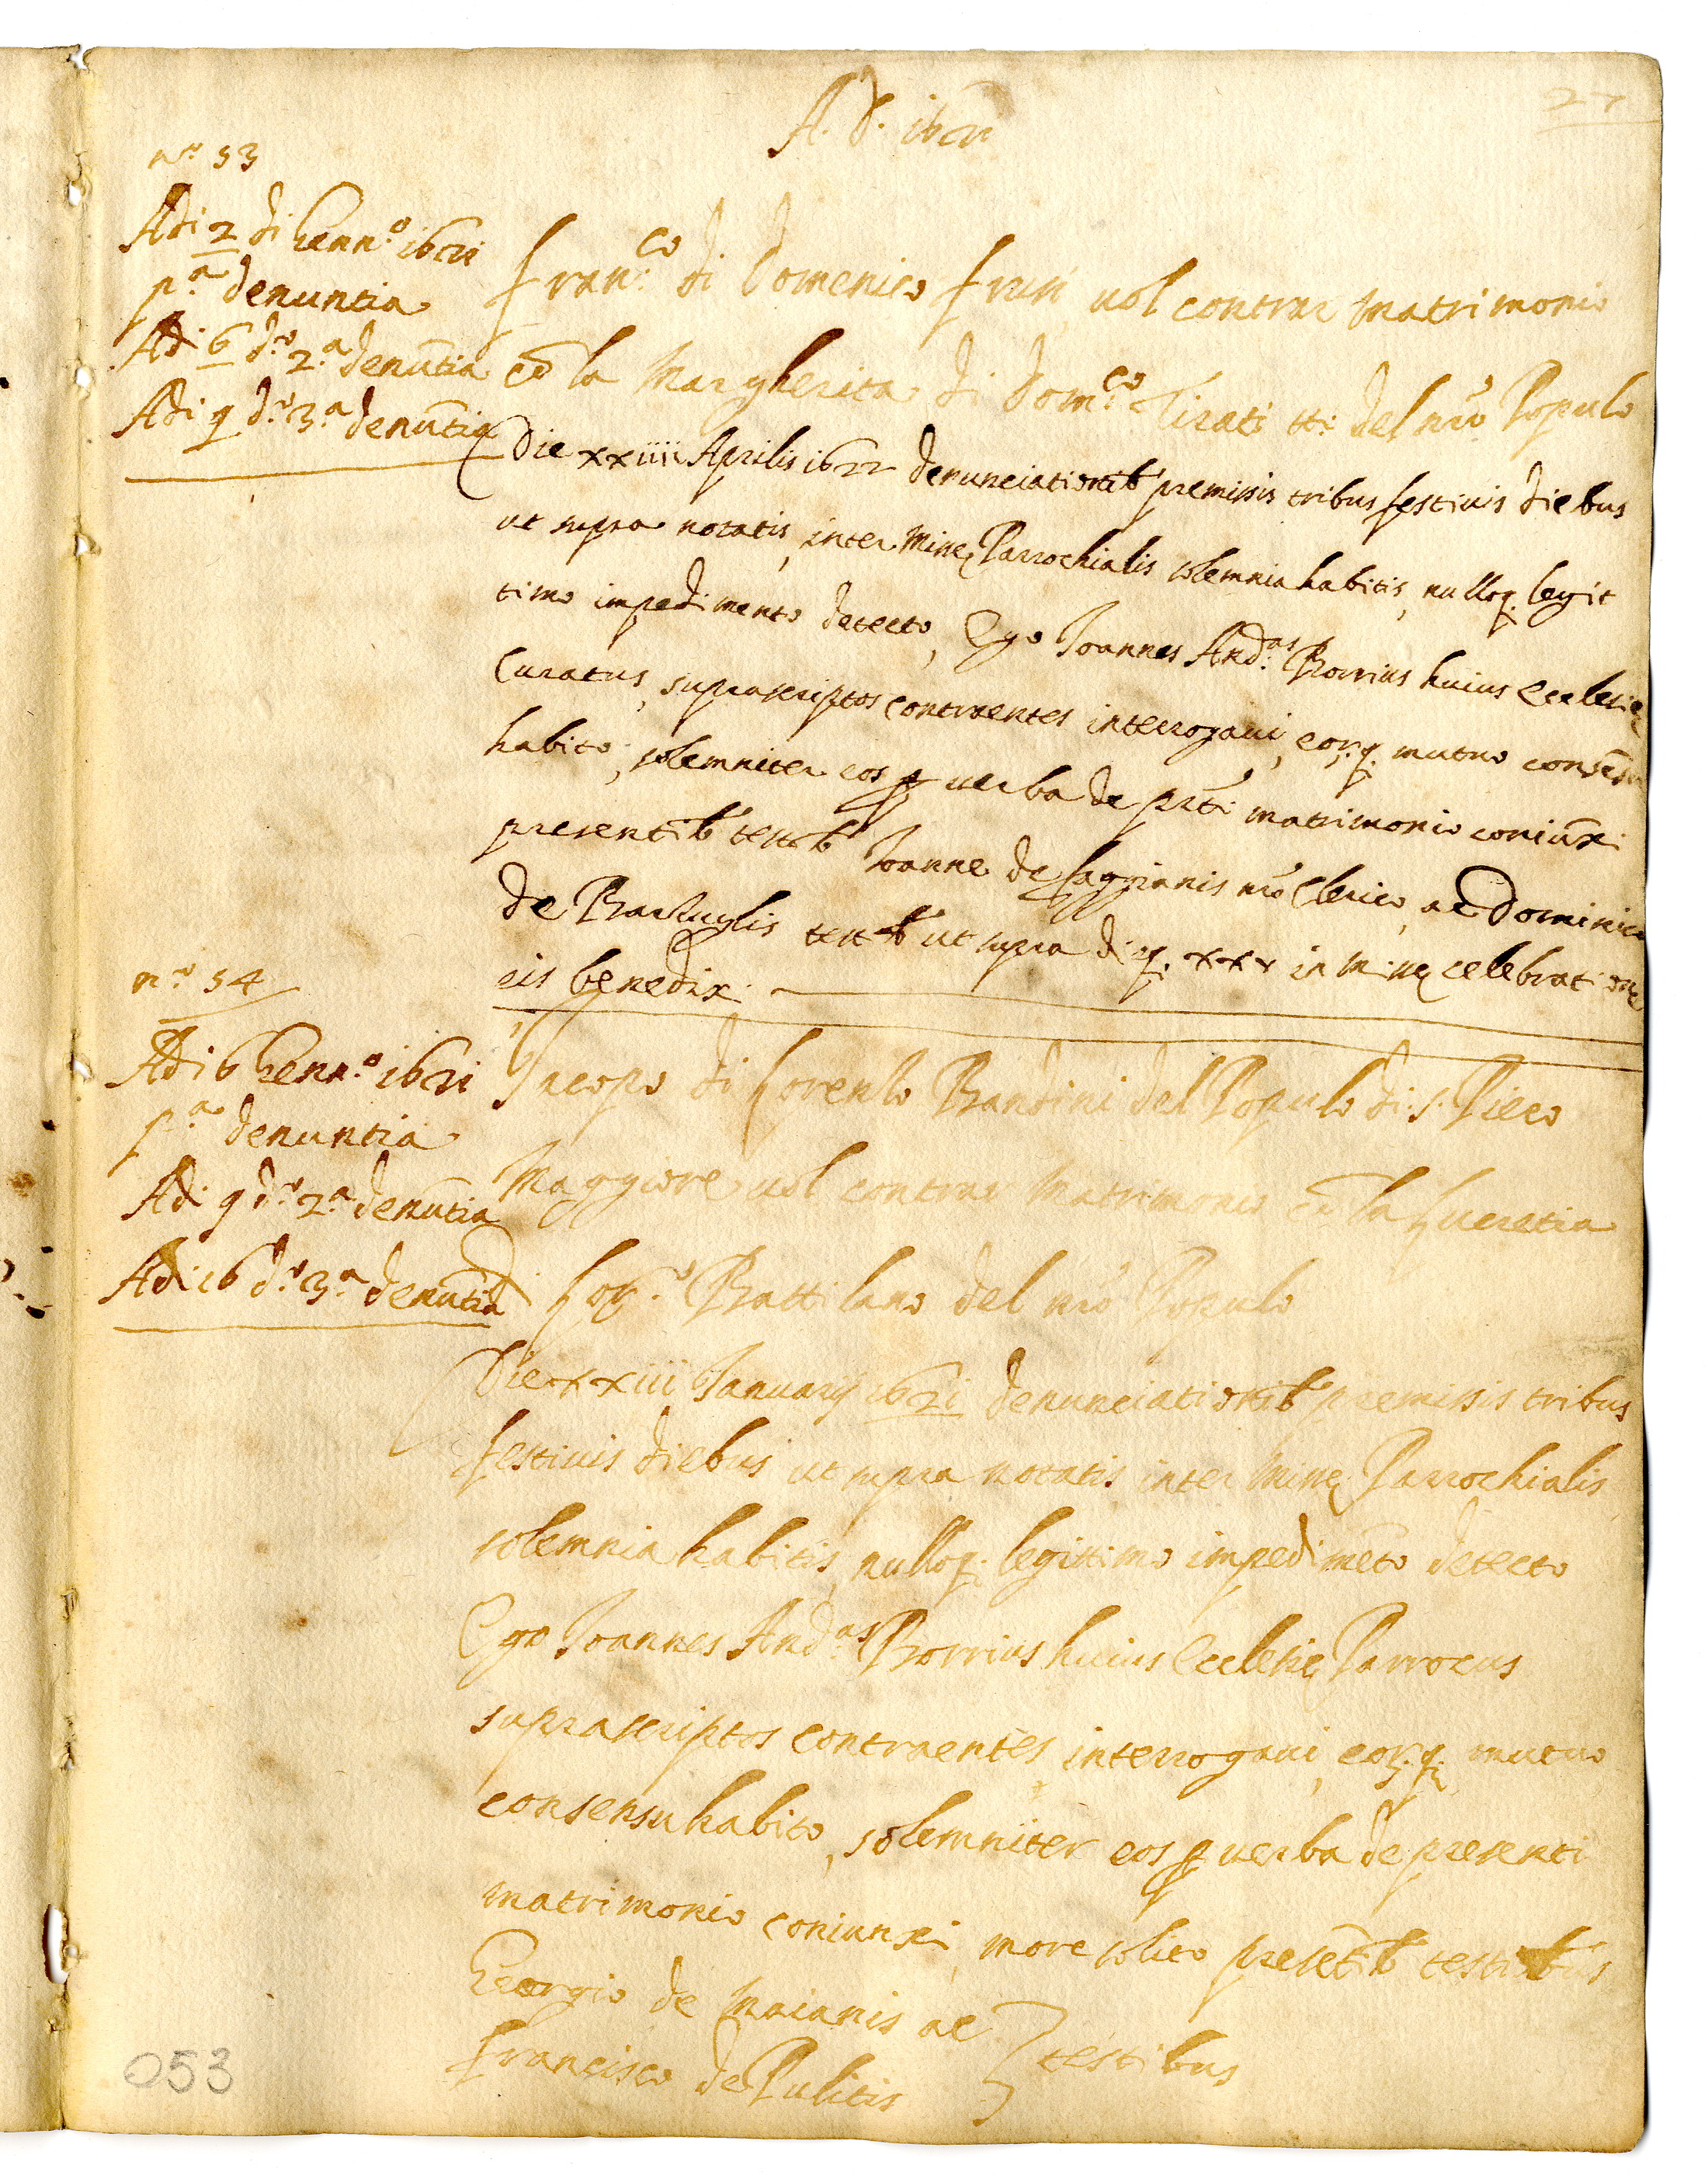 27
A. D. 1621
n.º 53
Adi 2 di Genn.º 1621
p.ª denuntia
Adi 6 d.º 2.ª denũtia
Adi 9 d.º 3.ª denũtia
Fran.co di Domenico vol contrar matrimonio
cõ la Margherita di Dom.co Tirati tti: del nrõ Populo
Die xxiiii Aprilis 1622 denunciationib premissis tribus festiuis diebus
ut supra notatis, inter Misse Parrochialis solemnia habitis, nulloq. legit
timo impedimento detecto, Ego Joannes And.as Borrius huius Ecclesie
Curatus, suprascriptos contraentes interrogaui, eor.q. mutuo consẽsu
habito, solemniter eos p uerba de prñti matrimonio coniũxi
presentib testib Joanne de Faggianis nrõ Clerico, ac Dominico
de testib ut supra dieq. xxv in Misse celebratione
eis benedixi.
n.º 54
Adi 6 Genn.º 1621
p.ª denuntia
Adi 9 d.º 2.ª denũtia
Adi 16 d.º 3.ª denũtia
Jacopo di Lorenzo Bandini del Populo di S. Piero
Maggiore vol contrar matrimonio cõ la Lucretia
di Lor.º Battilano del nrõ Populo
Die xxiii Januarij 1621 denunciationib premissis tribus
festiuis diebus ut supra notatis inter Misse Parrochialis
solemnia habitis, nulloq. legittimo impedimẽto detecto
Ego Joannes And.as Borrius huius Ecclesie Parrocus
suprascriptos contraentes interrogaui, eor.q. mutuo
consensu habito, solemniter eos p uerba de presenti
matrimonio coniunxi, more solito presẽtib testibus
Georgio de Maianis ac
Francisco de Pulitis } testibus
053